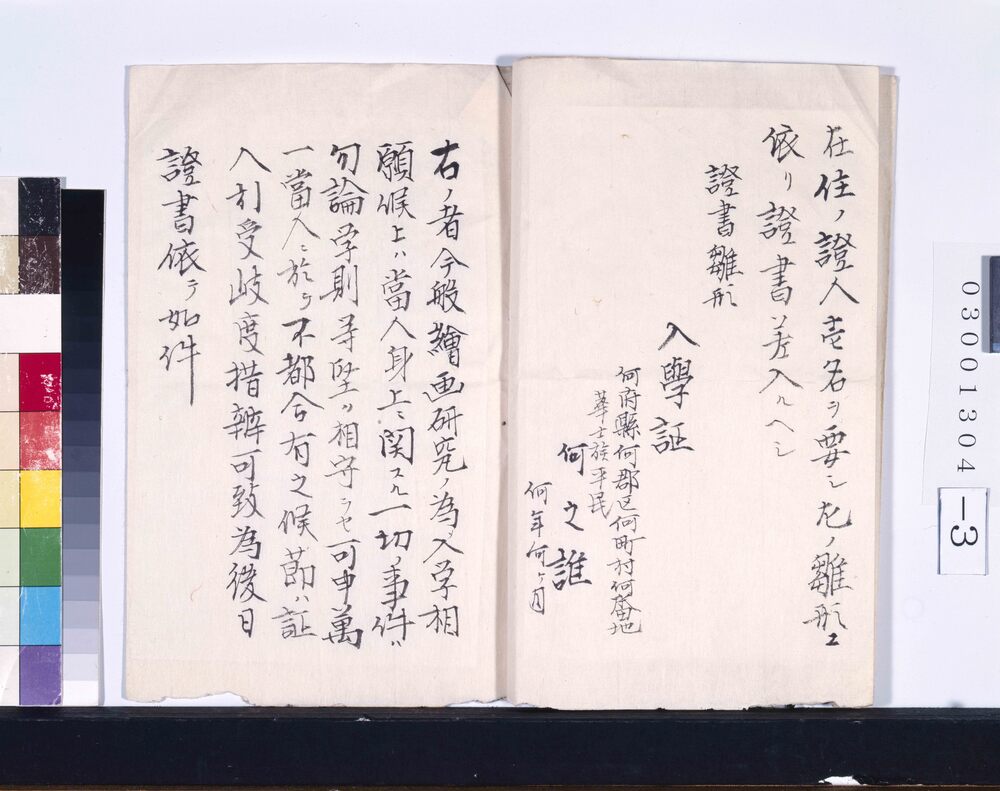 在住ノ證人壱名ヲ要シ左ノ雛形ニ
依リ證書差入ルヘシ
證書雛形
入學証
何府縣何郡区何町村何番地
華士族平民
何之誰
何年何ヶ月
右ノ者今般繪画研究ノ為メ入学相
願候上ハ當人身上ニ関スル一切ノ事件ハ
勿論学則等堅ク相守ラセ可申萬
一當人ニ於テ不都合有之候節ハ証
人引受岐度措辨可致為後日
證書依テ如件
03001304
-3